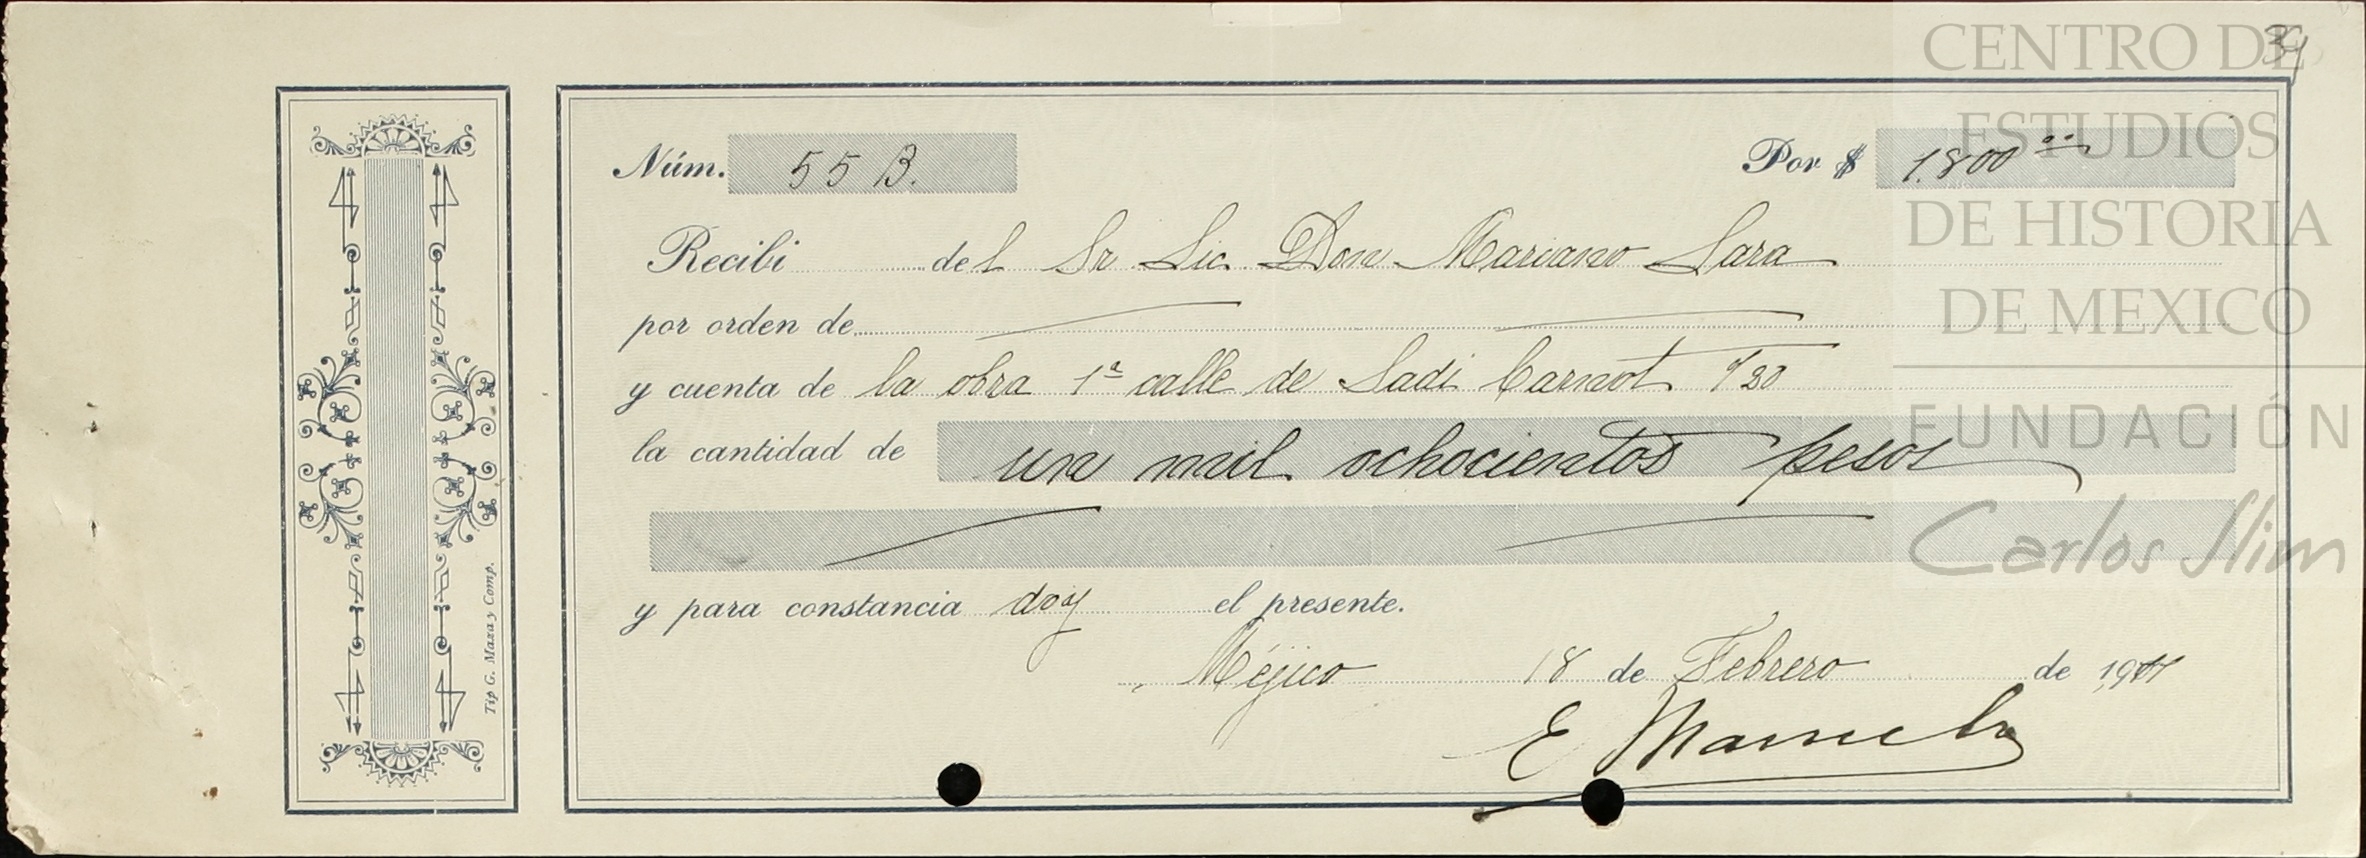 34
Núm. 55 B. Por $ 1.800 00
Recibí del Sr. Lic. Don Mariano Lara
por orden de
y cuenta de la obra 1ª calle de Sadi Carnot nº 20
la cantidad de un mil ochocientos pesos
y para constancia doy el presente.
Méjico 18 de Febrero de 1911
E
Tip G. Maza y Comp.
CENTRO DE
ESTUDIOS
DE HISTORIA
DE MEXICO
FUNDACIÓN
Carlos Slim